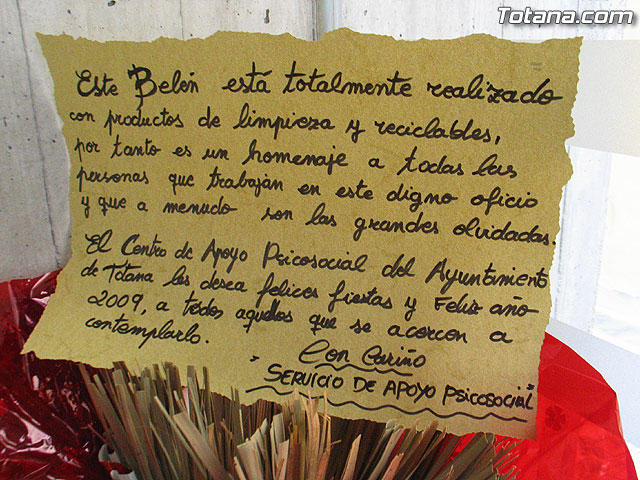 Totana.com
Este Belén está totalmente realizado
con productos de limpieza y reciclables,
por tanto es un homenaje a todas las
personas que trabajan en este digno oficio
y que a menudo son las grandes olvidadas.
El Centro de Apoyo Psicosocial del Ayuntamiento
de Totana les desea felices fiestas y Feliz año
2009, a todos aquellos que se acercan a
contemplarlo.
Con Cariño
"SERVICIO DE APOYO PSICOSOCIAL"